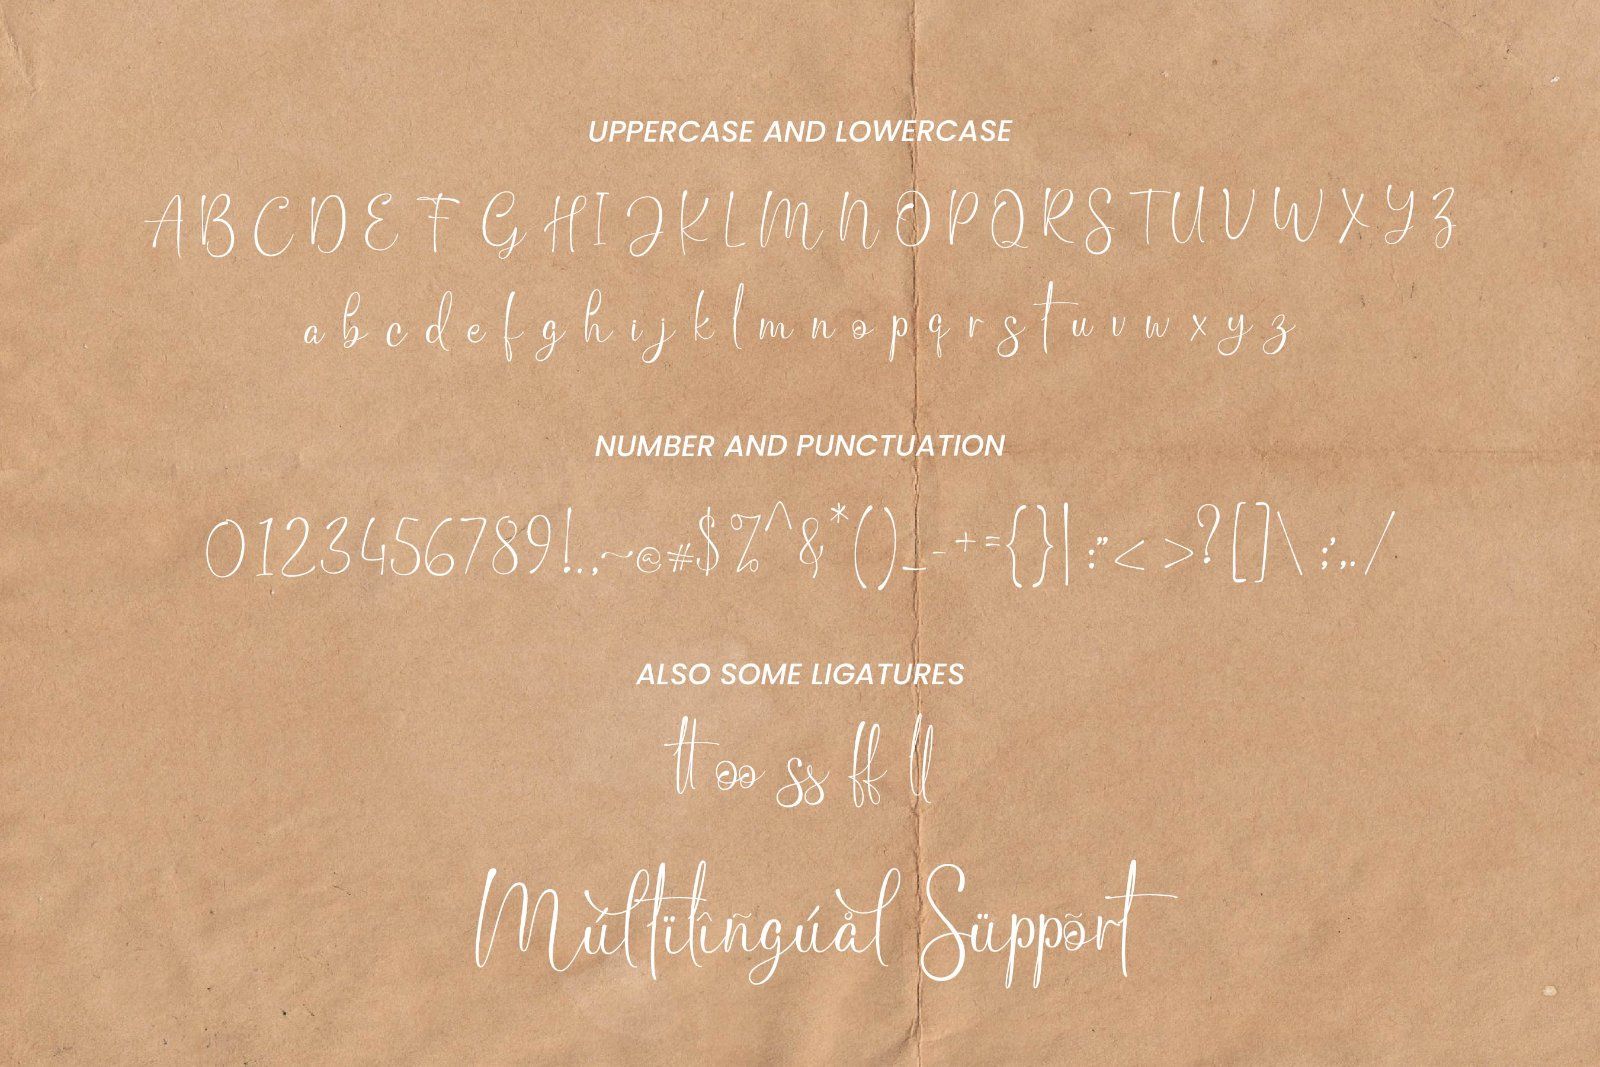 UPPERCASE AND LOWERCASE
A B C D E F G H I J K L M N O P Q R S T U V W X Y Z
a b c d e f g h i j k l m n o p q r s t u v w x y z
NUMBER AND PUNCTUATION
0123456789!.,~@#$%^&*()_-+={}|:"<>?[]\;',./
ALSO SOME LIGATURES
tt oo ss ff ll
Múltïlîñgúål Süppõrt